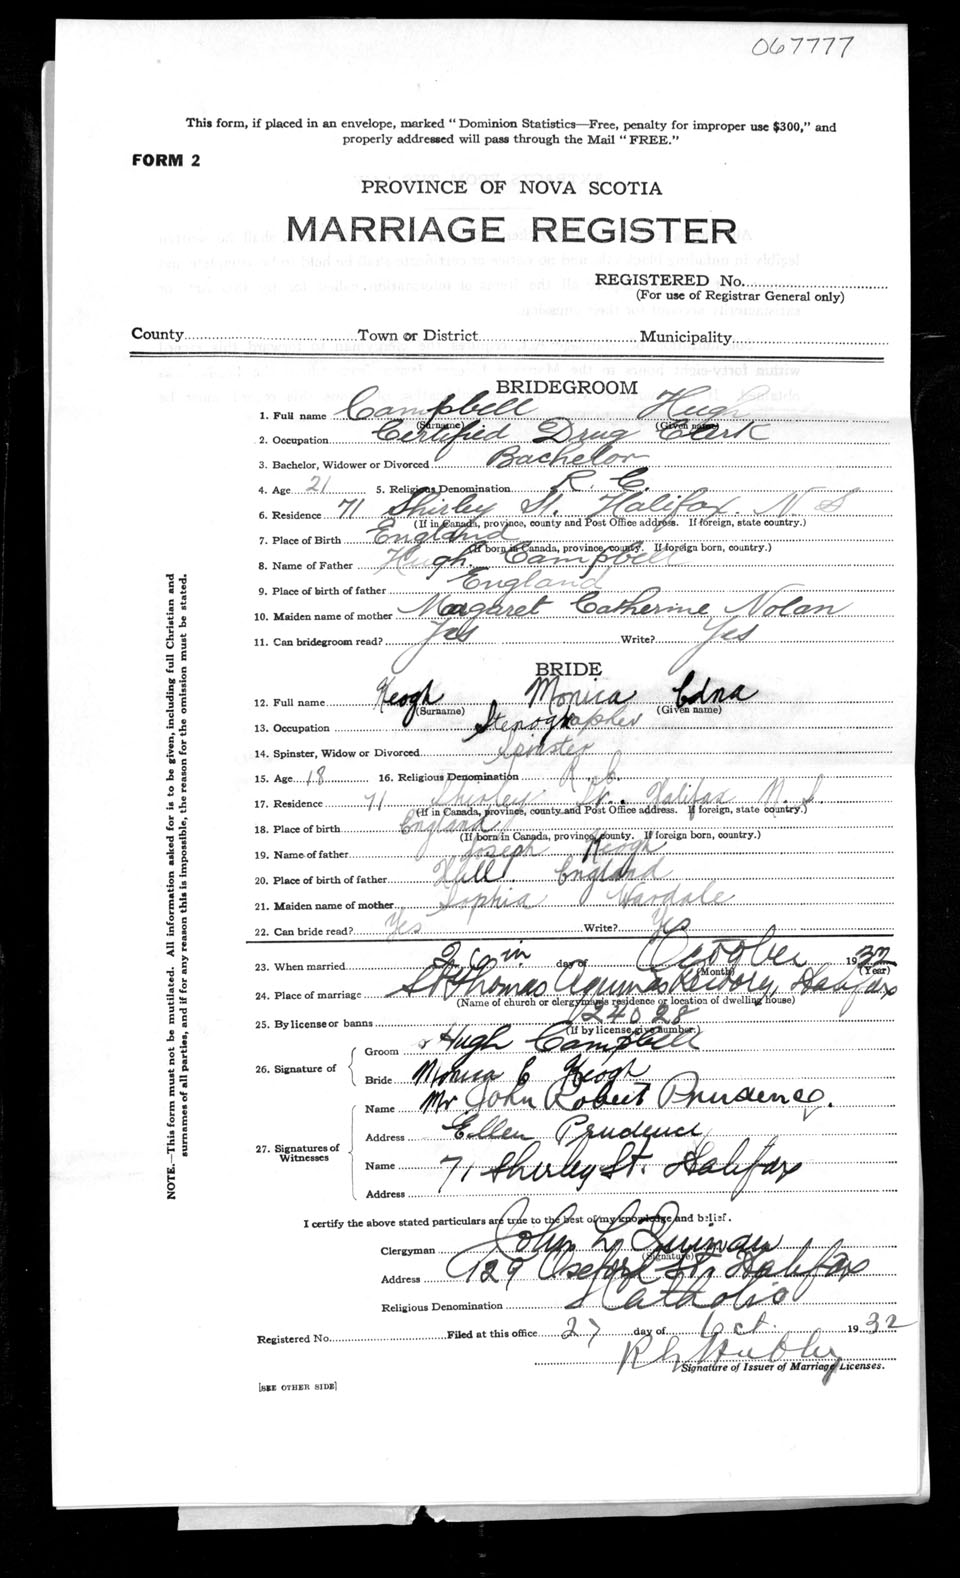 067777
This form, if placed in an envelope, marked "Dominion Statistics—Free, penalty for improper use $300," and
properly addressed will pass through the Mail "FREE."
FORM 2
PROVINCE OF NOVA SCOTIA
MARRIAGE REGISTER
REGISTERED No.
(For use of Registrar General only)
County Town or District Municipality
BRIDEGROOM
1. Full name Campbell Hugh
(Surname) (Given name)
2. Occupation Certified Drug Clerk
3. Bachelor, Widower or Divorced Bachelor
4. Age 21 5. Religious Denomination R. C.
6. Residence 71 Shirley St. Halifax. N. S
(If in Canada, province, county and Post Office address. If foreign, state country.)
7. Place of Birth England
(If born in Canada, province, county. If foreign born, country.)
8. Name of Father Hugh Campbell
9. Place of birth of father England
10. Maiden name of mother Margaret Catherine Nolan
11. Can bridegroom read? Yes Write? Yes
BRIDE
12. Full name Keogh Monica Edna
(Surname) (Given name)
13. Occupation Stenographer
14. Spinster, Widow or Divorced Spinster
15. Age 18 16. Religious Denomination R. C.
17. Residence 71 Shirley St., Halifax N. S.
(If in Canada, province, county and Post Office address. If foreign, state country.)
18. Place of birth England
(If born in Canada, province, county. If foreign born, country.)
19. Name of father Joseph Keogh
20. Place of birth of father Hull England
21. Maiden name of mother Sophia Wardale
22. Can bride read? Yes Write? Yes
23. When married 26th day of October 1932
(Month) (Year)
24. Place of marriage St Thomas Aquinas Rectory, Halifax
(Name of church or clergyman's residence or location of dwelling house)
25. By license or banns 24028
(If by license, give number.)
26. Signature of
Groom Hugh Campbell
Bride Monica E Keogh
27. Signatures of Witnesses
Name Mr John Robert Prudence.
Address Ellen Prudence
Name 71 Shirley St. Halifax
Address
I certify the above stated particulars are true to the best of my knowledge and belief.
Clergyman John L Quinan
(Signature)
Address 129 Oxford St, Halifax
Religious Denomination Catholic
Registered No. Filed at this office 27 day of Oct. 1932
Signature of Issuer of Marriage Licenses.
[SEE OTHER SIDE]
NOTE.—This form must not be mutilated. All information asked for is to be given, including full Christian and
surnames of all parties, and if for any reason this is impossible, the reason for the omission must be stated.